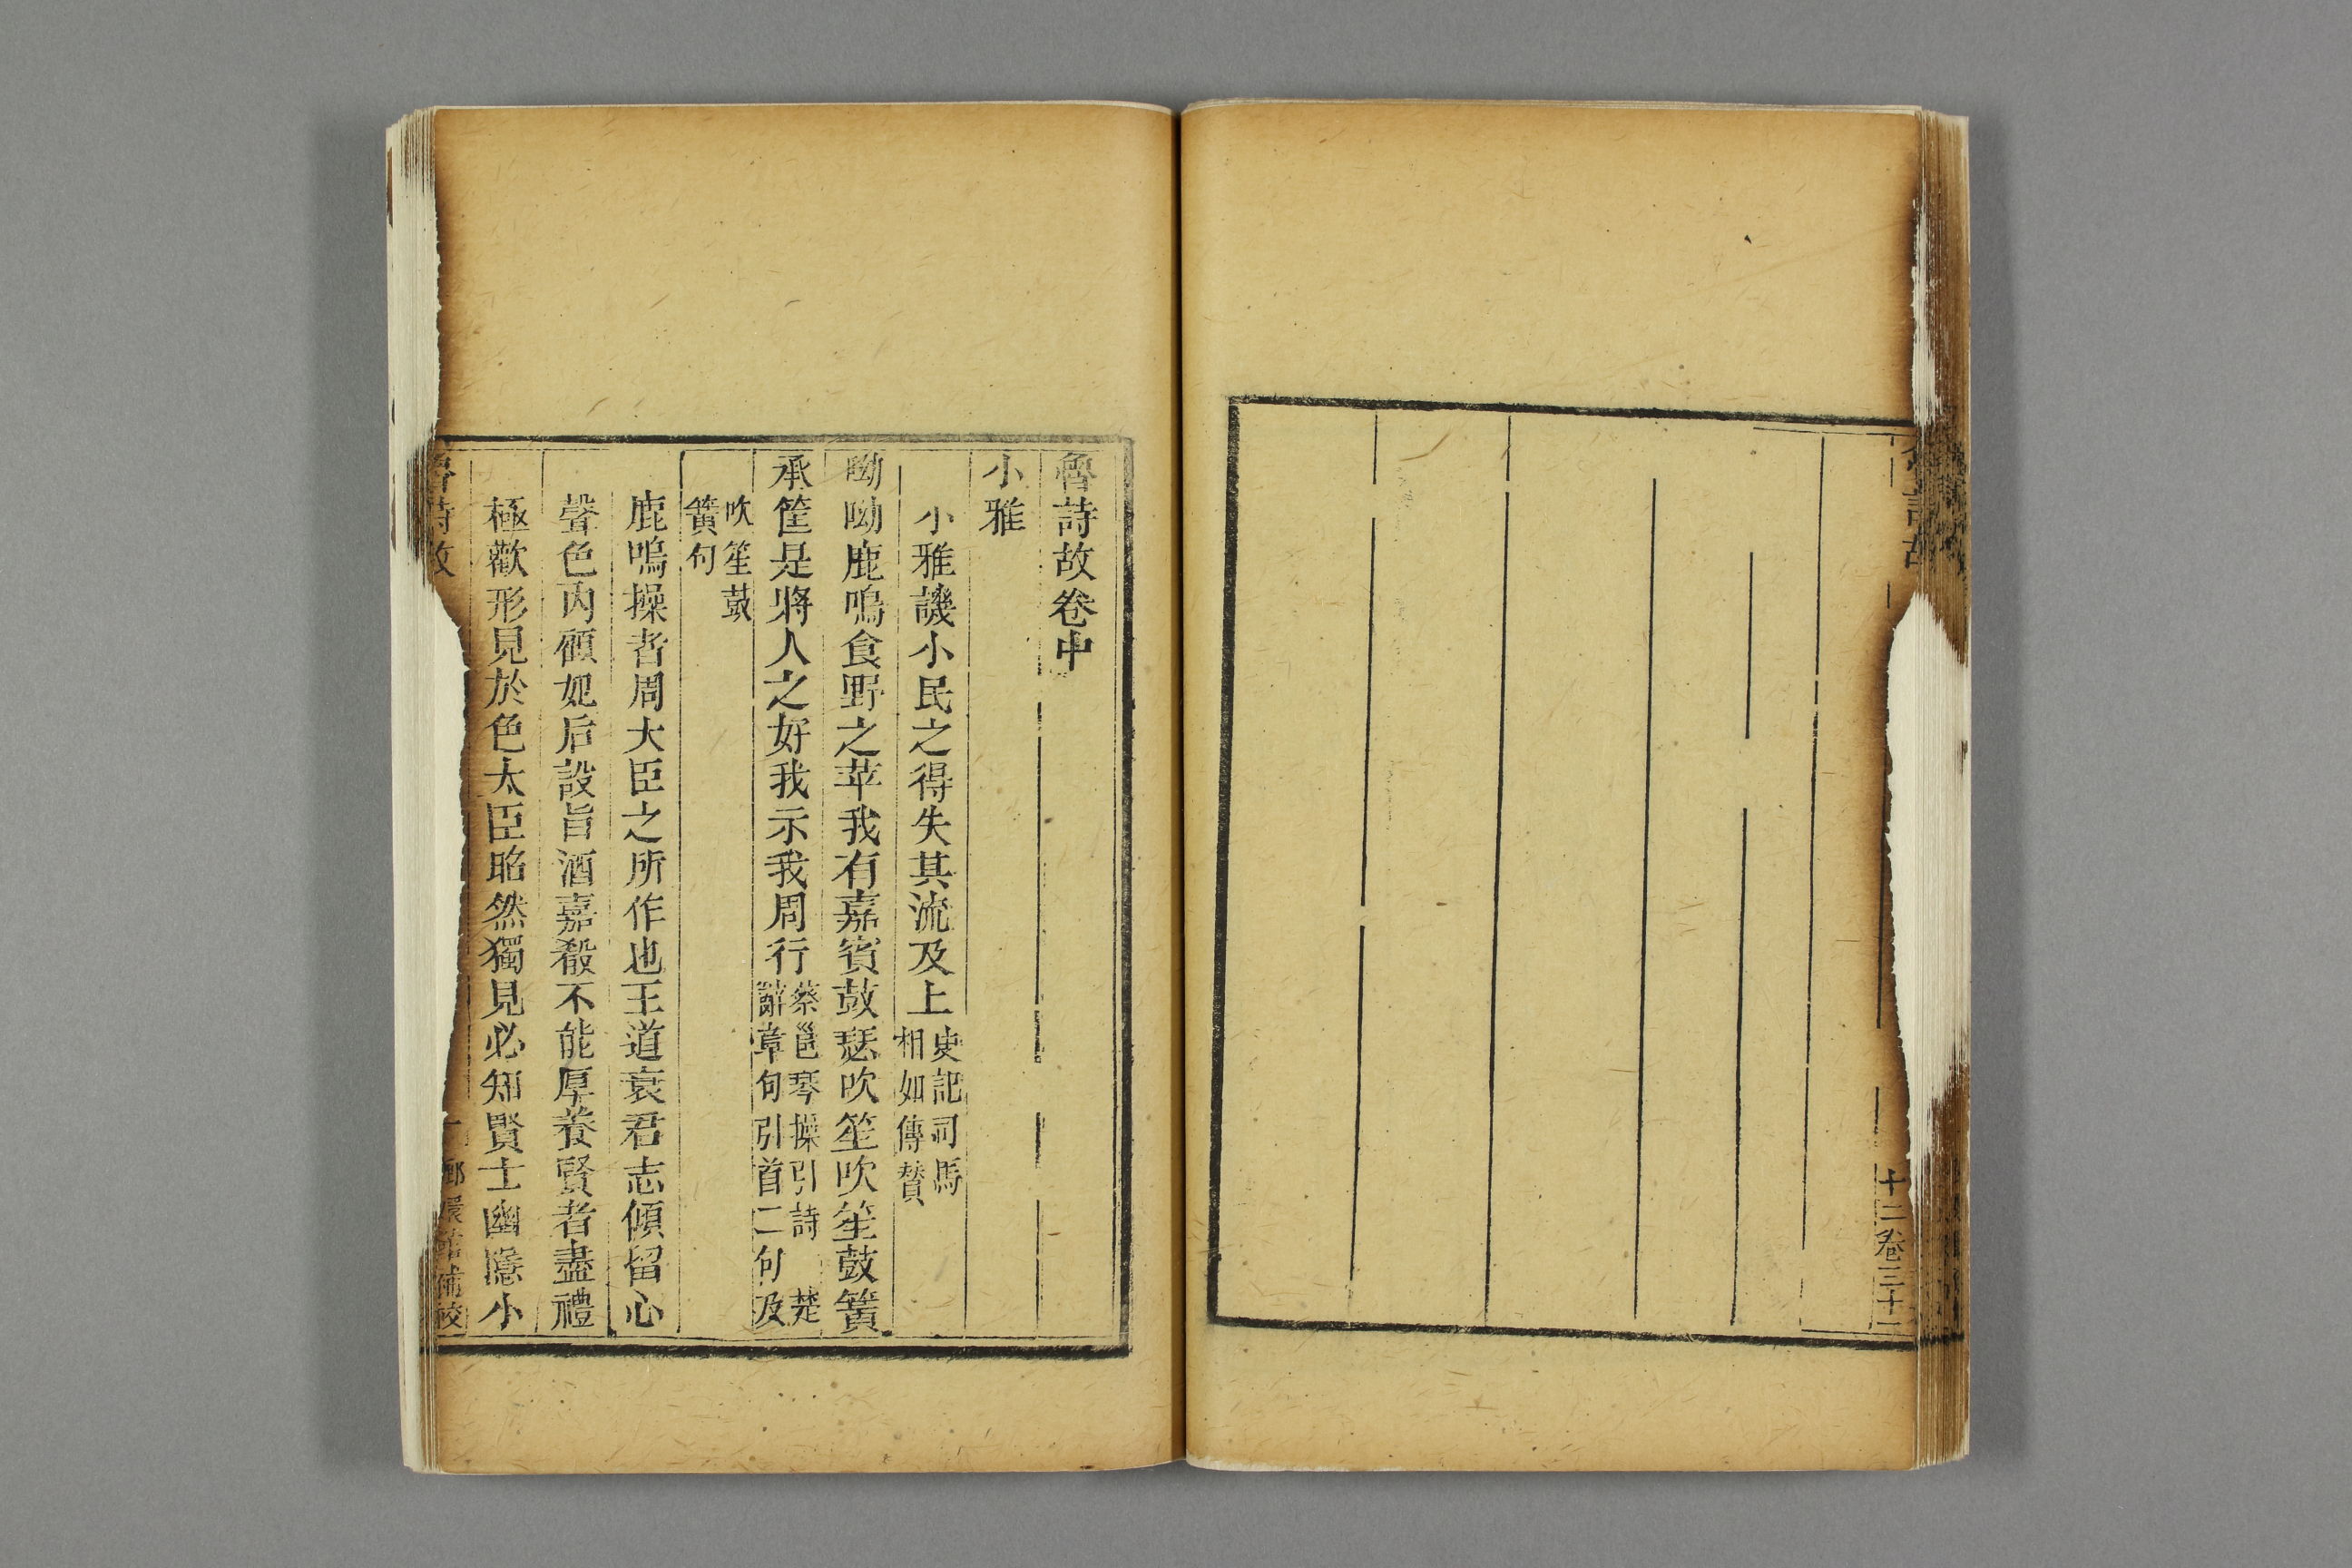 十二卷三十二
魯詩故卷中
小雅
小雅譏小民之得失其流及上史記司馬相如傳贊
呦呦鹿鳴食野之苹我有嘉賓鼓瑟吹笙吹笙鼓簧
承筐是將人之好我示我周行蔡邕琴操引詩 楚辭章句引首二句及
吹笙鼓簧句
鹿鳴操者周大臣之所作也王道衰君志傾留心
聲色內顧妃后設旨酒嘉殽不能厚養賢者盡禮
極歡形見於色大臣昭然獨見必知賢士幽隱小
魯詩故
嬛館補校